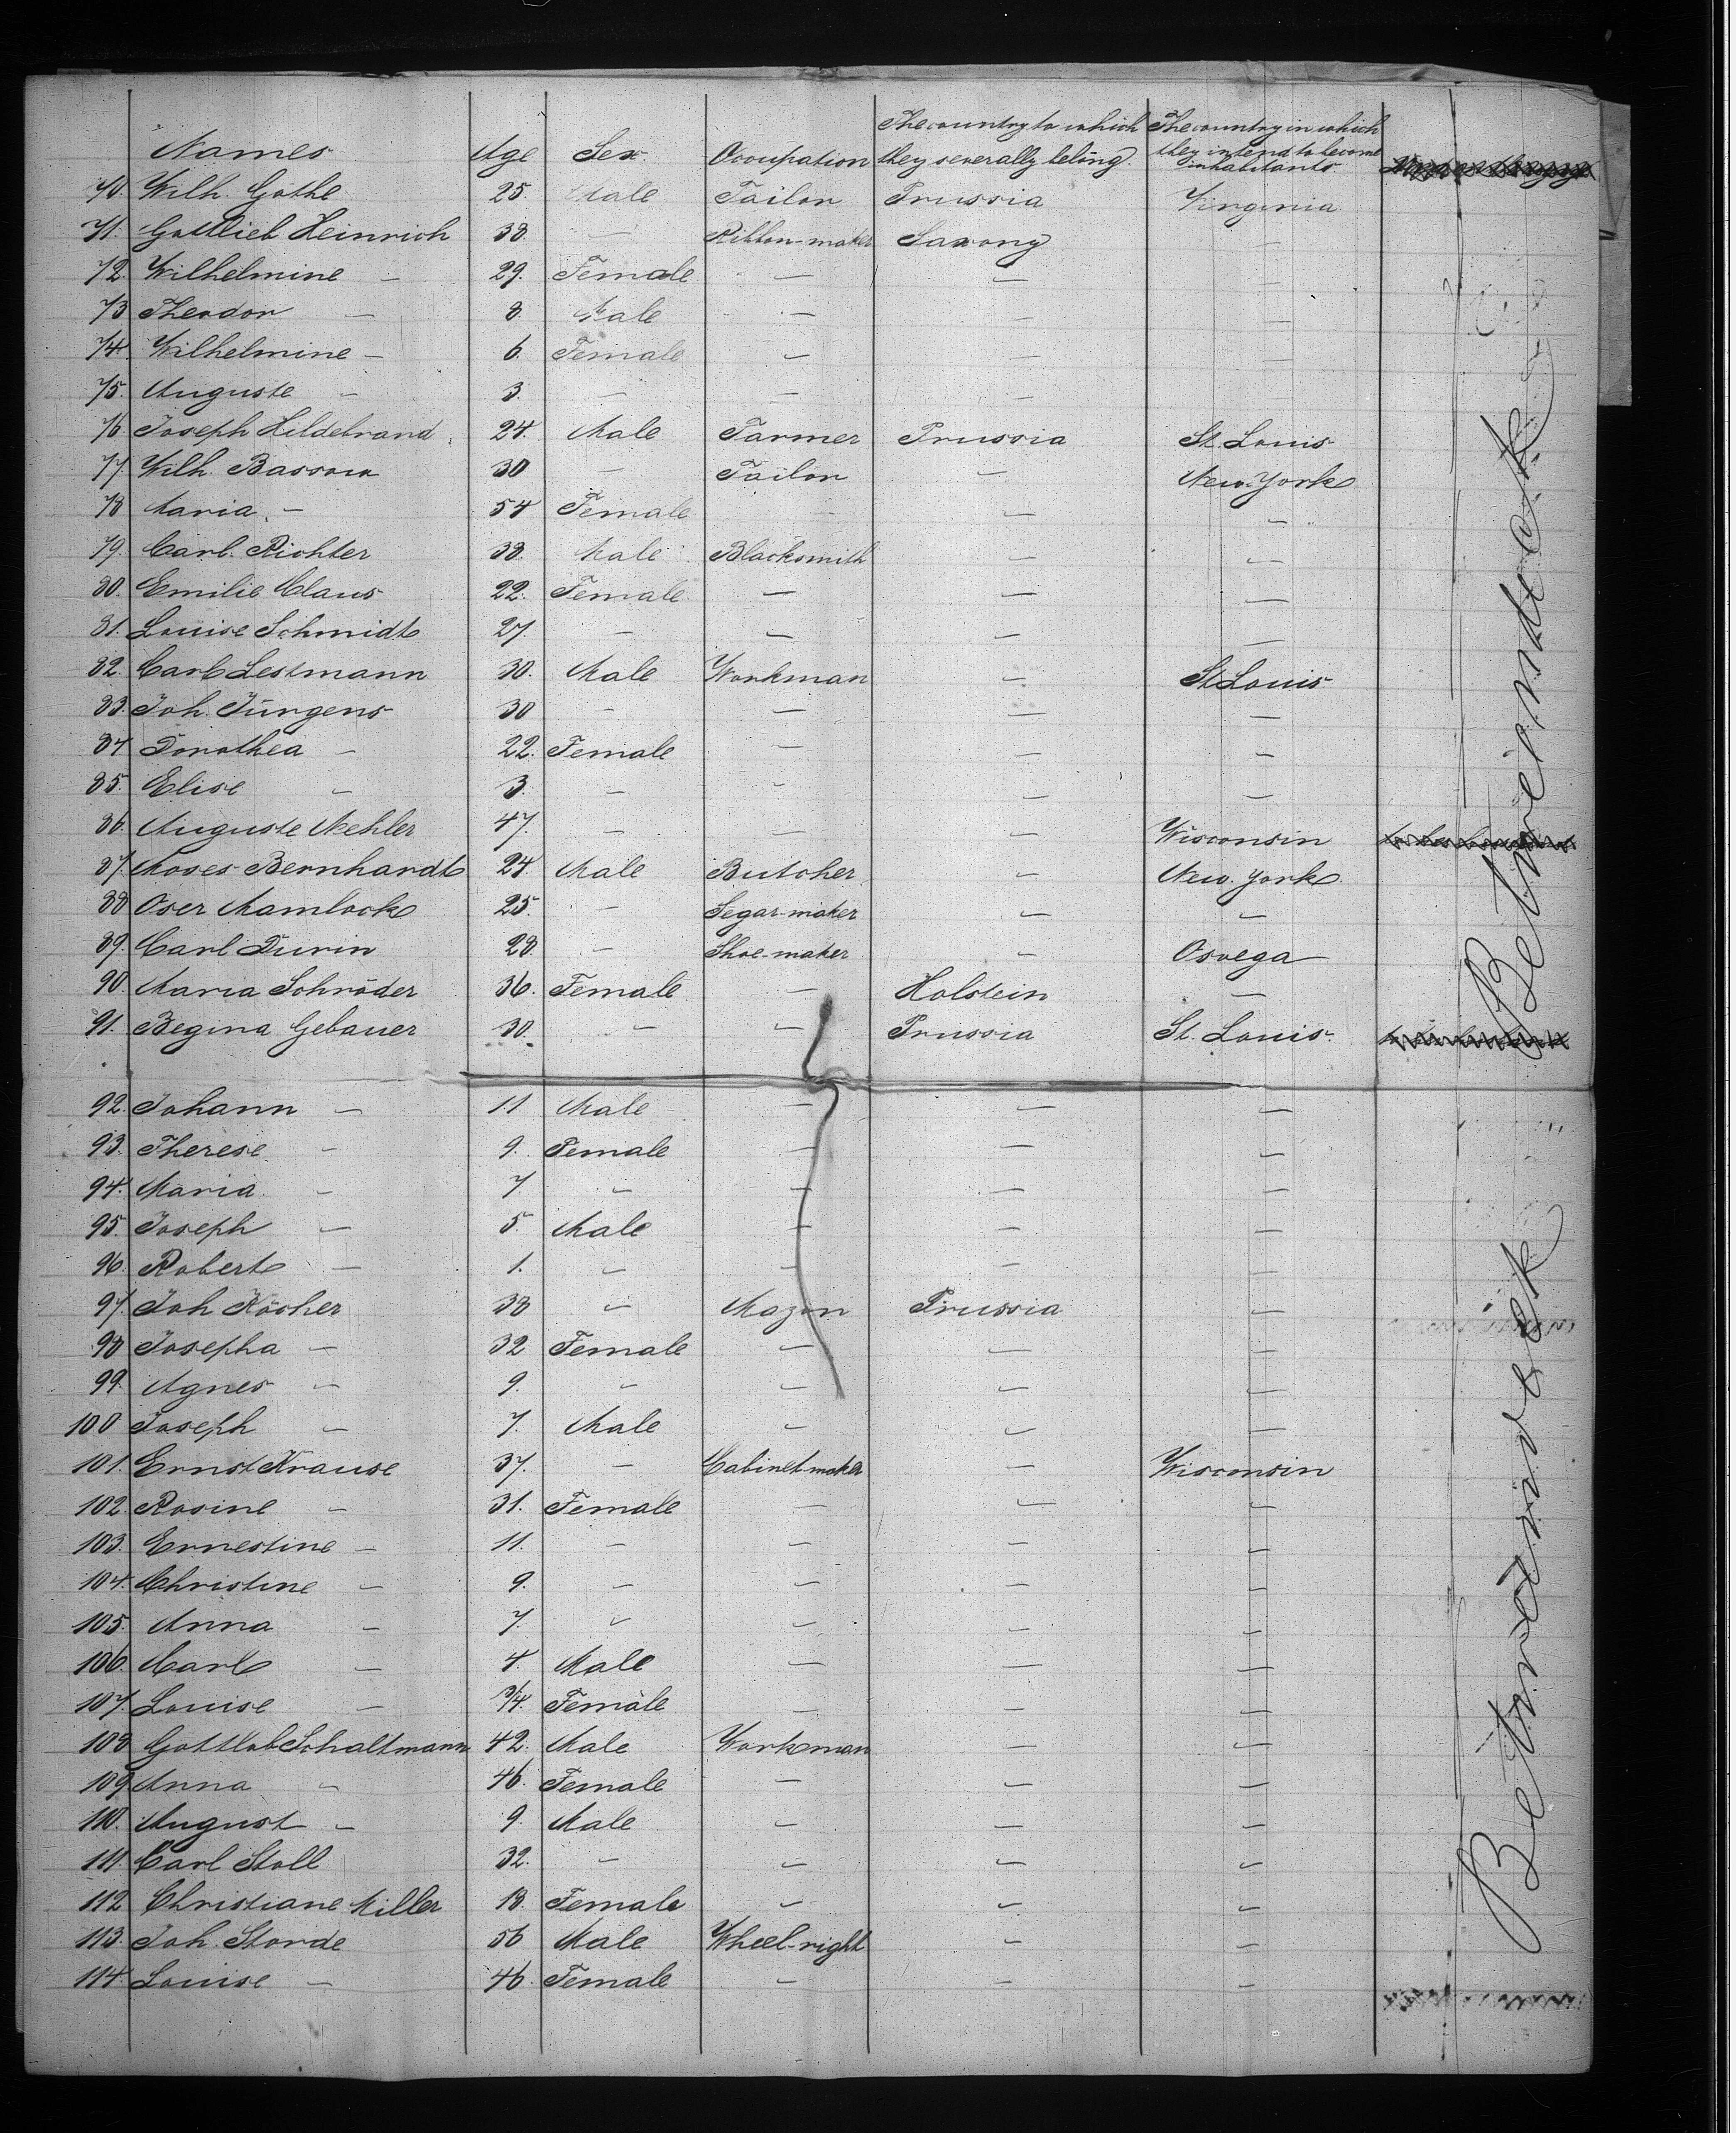 Names Age Sex. Occupation The country to which they severally belong. The country in which they intend to become inhabitants
70. Wilh. Gothe 25. Male Tailor Prussia Virginia
71. Gottlieb Heinrich 38. — Ribbon-maker Saxony —
72. Wilhelmine — 29. Female — — —
73 Theodor — 8. Male — — —
74. Wilhelmine — 6. Female — — —
75. Auguste — 3. — — —
76. Joseph Hildebrand 24. Male Farmer Prussia St. Louis
77. Wilh. Bassow 30 — Tailor — New-York
78 Maria — 54 Female — — —
79. Carl Richter 38. Male Blacksmith — —
80. Emilie Claus 22. Female — — —
81. Louise Schmidt 27. — — — —
82. Carl Lestmann 30. Male Workman — St Louis
83. Joh. Jürgens 30 — — — —
84 Dorothea — 22. Female — — —
85. Elise — 3. — — — —
86. Auguste Mehler 47. — — — Wisconsin
87. Moses Bernhardt 24. Male Butcher — New-York
88 Oser Mamlock 25. — Segar-maker — —
89. Carl Durin 28. — Shoe-maker — Osvega
90. Maria Schröder 36. Female — Holstein —
91. Regina Gebauer 30. — — Prussia St. Louis
92. Johann — 11 Male — — —
93. Therese — 9. Female — — —
94. Maria — 7. — — — —
95. Joseph — 5. Male — — —
96. Robert — 1. — — — —
97. Joh Köcher 38 — Mazon Prussia —
98 Josepha — 32 Female — — —
99. Agnes — 9. — — — —
100 Joseph — 7. Male — — —
101. Ernst Krause 37. — Cabinet-maker — Wisconsin
102. Rosine — 31. Female — — —
103. Ernestine — 11. — — — —
104. Christine — 9. — — — —
105. Anna — 7. — — — —
106. Carl — 4. Male — — —
107. Louise — 3/4. Female — — —
108 Gottlob Schaltmann 42. Male Workman — —
109. Anna — 46. Female — — —
110. August — 9. Male — — —
111. Carl Stoll 32. — — — —
112 Christiane Miller 18. Female — — —
113. Joh. Storde 56 Male Wheel-right — —
114. Louise — 46. Female — — —